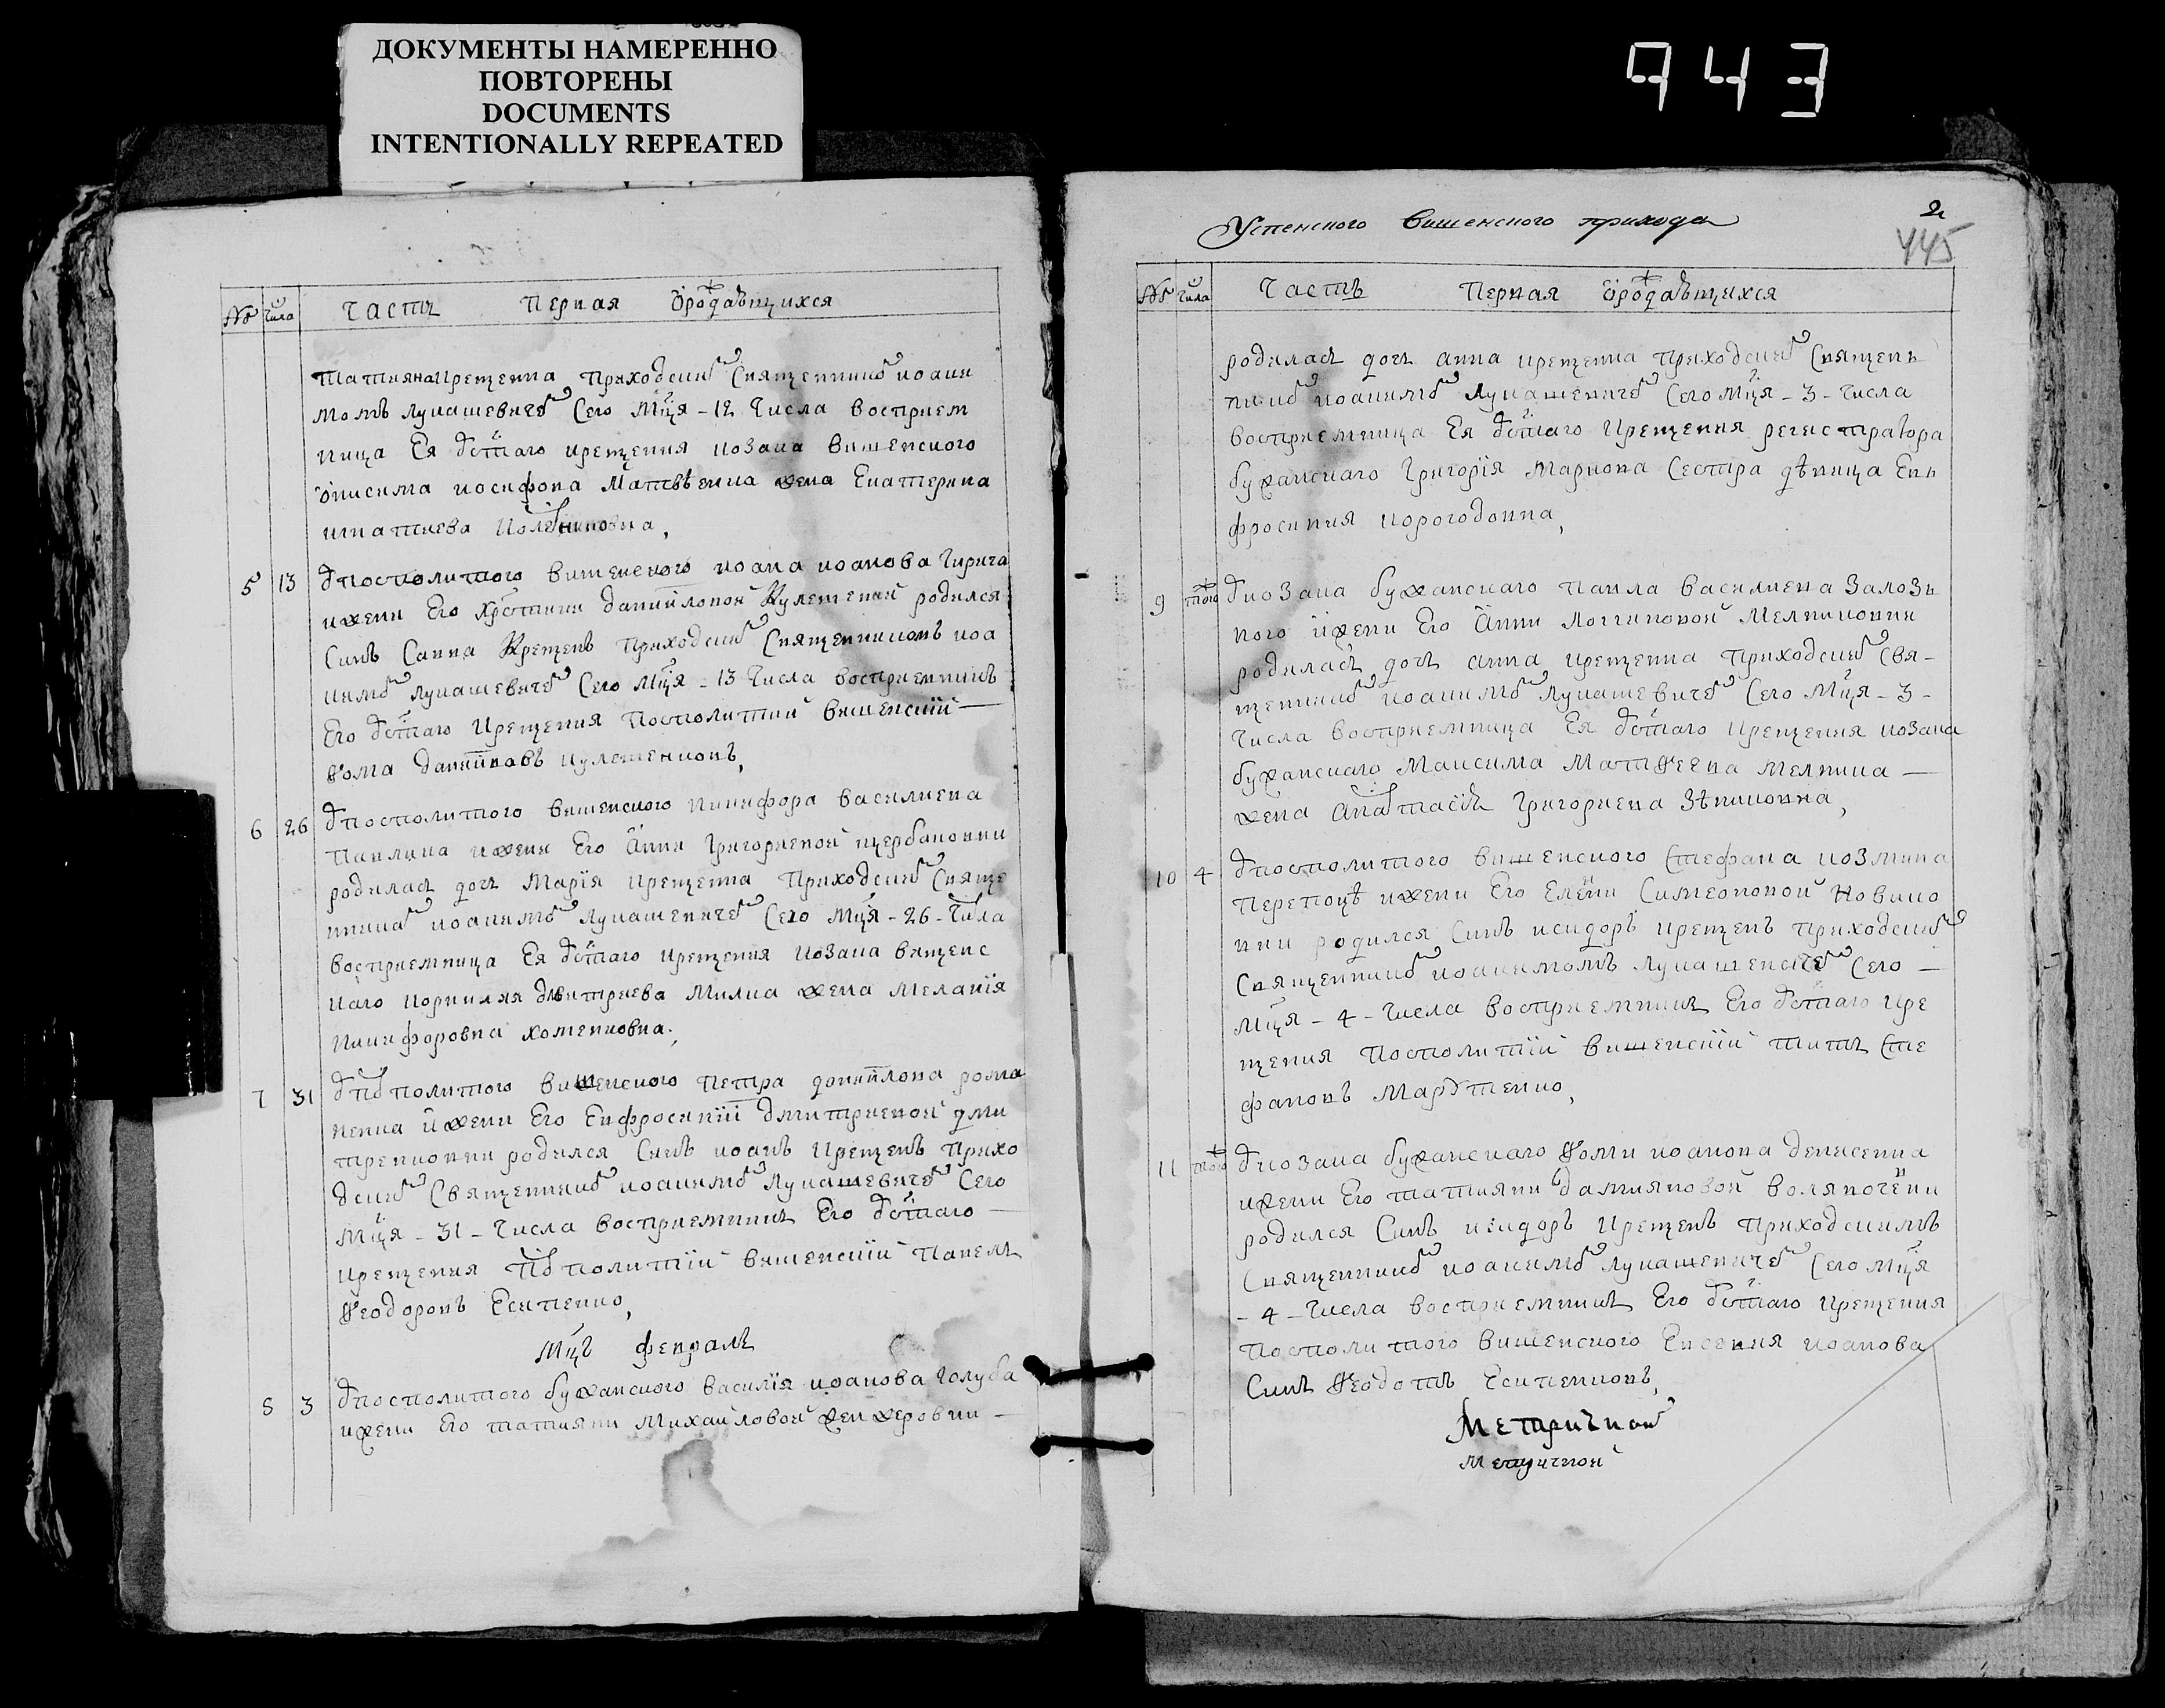 ДОКУМЕНТЫ НАМЕРЕННО
ПОВТОРЕНЫ
DOCUMENTS
INTENTIONALLY REPEATED
943
№ Числа Часть Первая Ѡрождавшихся
Татияна крещенна приходским Священником иоаки
момъ Лукашевичем Сего мця - 12 Числа восприем
ница Ея Ѿ стаго крещения козака вишенского
онисима иосифова Матвѣенка жена Екатерина
игнатиева
5 13 Ѿ посполитого вишенского иоана иоанова Чирича
и жени Его Христини даниловой Кулешевой родился
Синъ Савва Крещенъ приходским Священникомъ иоа
кимом Лукашевичем Сего мця - 13 Числа восприемникъ
Его Ѿ стаго Крещения посполитий вишенский
Ѳома данииловъ кулешенковъ,
6 26 Ѿ посполитого вишенского никифора василиева
павлика и жени Его Анни григориевой щербаковни
родилась дочь Мария крещенна приходским Свяще
нником иоакимом Лукашевичем Сего мця - 26 - Числа
восприемница Ея Ѿ стаго крещения козака вишенс
каго корнилия дмитриева Милка жена Мелания
Никифоровна хоменковна.
7 31 Ѿ посполитого вишенского петра даниилова рома
ненка и жени Его Евфросинии дмитриевой дми
тренковни родился Синъ иоанъ крещенъ прихо
дским Священником иоакимом Лукашевичем Сего
мця - 31 - Числа восприемникъ Его Ѿ стаго
крещения посполитий вишенский павелъ
Ѳеодоровъ Есипенко,
Мцъ февраль
8 3 Ѿ посполитого бужанского василия иоанова голуба
и жени Его татияни Михайловой женжеровни
Успенского вишенского прихода
2
445
№ Числа Часть Первая Ѡрождавшихся
родилась дочь анна крещенна приходским Священ
ником иоакимом Лукашевичем Сего мця - 3 - Числа
восприемница Ея Ѿ стаго крещения регистратора
бужанскаго Григория Маркова Сестра дѣвица Ев
фросиния
9 того Ѿ козака бужанскаго павла василиева Залозн
кого и жени Его Анни Логгиновой Мелниковни
родилась дочь анна крещенна приходским Свя-
щенником иоакимом Лукашевичем Сего мця - 3 -
Числа восприемница Ея Ѿ стаго крещения козака
бужанскаго Максима Матѳеева мелника
жена Анастасия Григориева Зѣнковна,
10 4 Ѿ посполитого вишенского Стефана козмина
и жени Его Елени Симеоновой Новико
вни родился Синъ исидоръ крещенъ приходским
Священником иоакимомъ Лукашевичем Сего
мця - 4 - Числа восприемникъ Его Ѿ стаго кре
щения посполитий вишенский титъ Сте
фановъ Мартиенко,
11 того Ѿ козака бужанскаго Ѳоми иоанова денисенка
и жени Его татияни дамияновой
родился Синъ исидоръ крещенъ приходскимъ
Священником иоакимом Лукашевичем Сего мця
- 4 - Числа восприемникъ Его Ѿ стаго крещения
посполитого вишенского Евсевия иоанова
Синъ Ѳеодотъ Есипенковъ,
Метричной
метричной